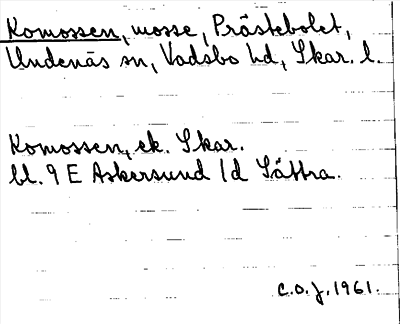 Komossen, mosse, Prästebolet,
Undenäs sn, Vadsbo hd, Skar. l.
Komossen, ek. Skar.
bl. 9 E Askersund 1d Sättra.
C.O.J. 1961.